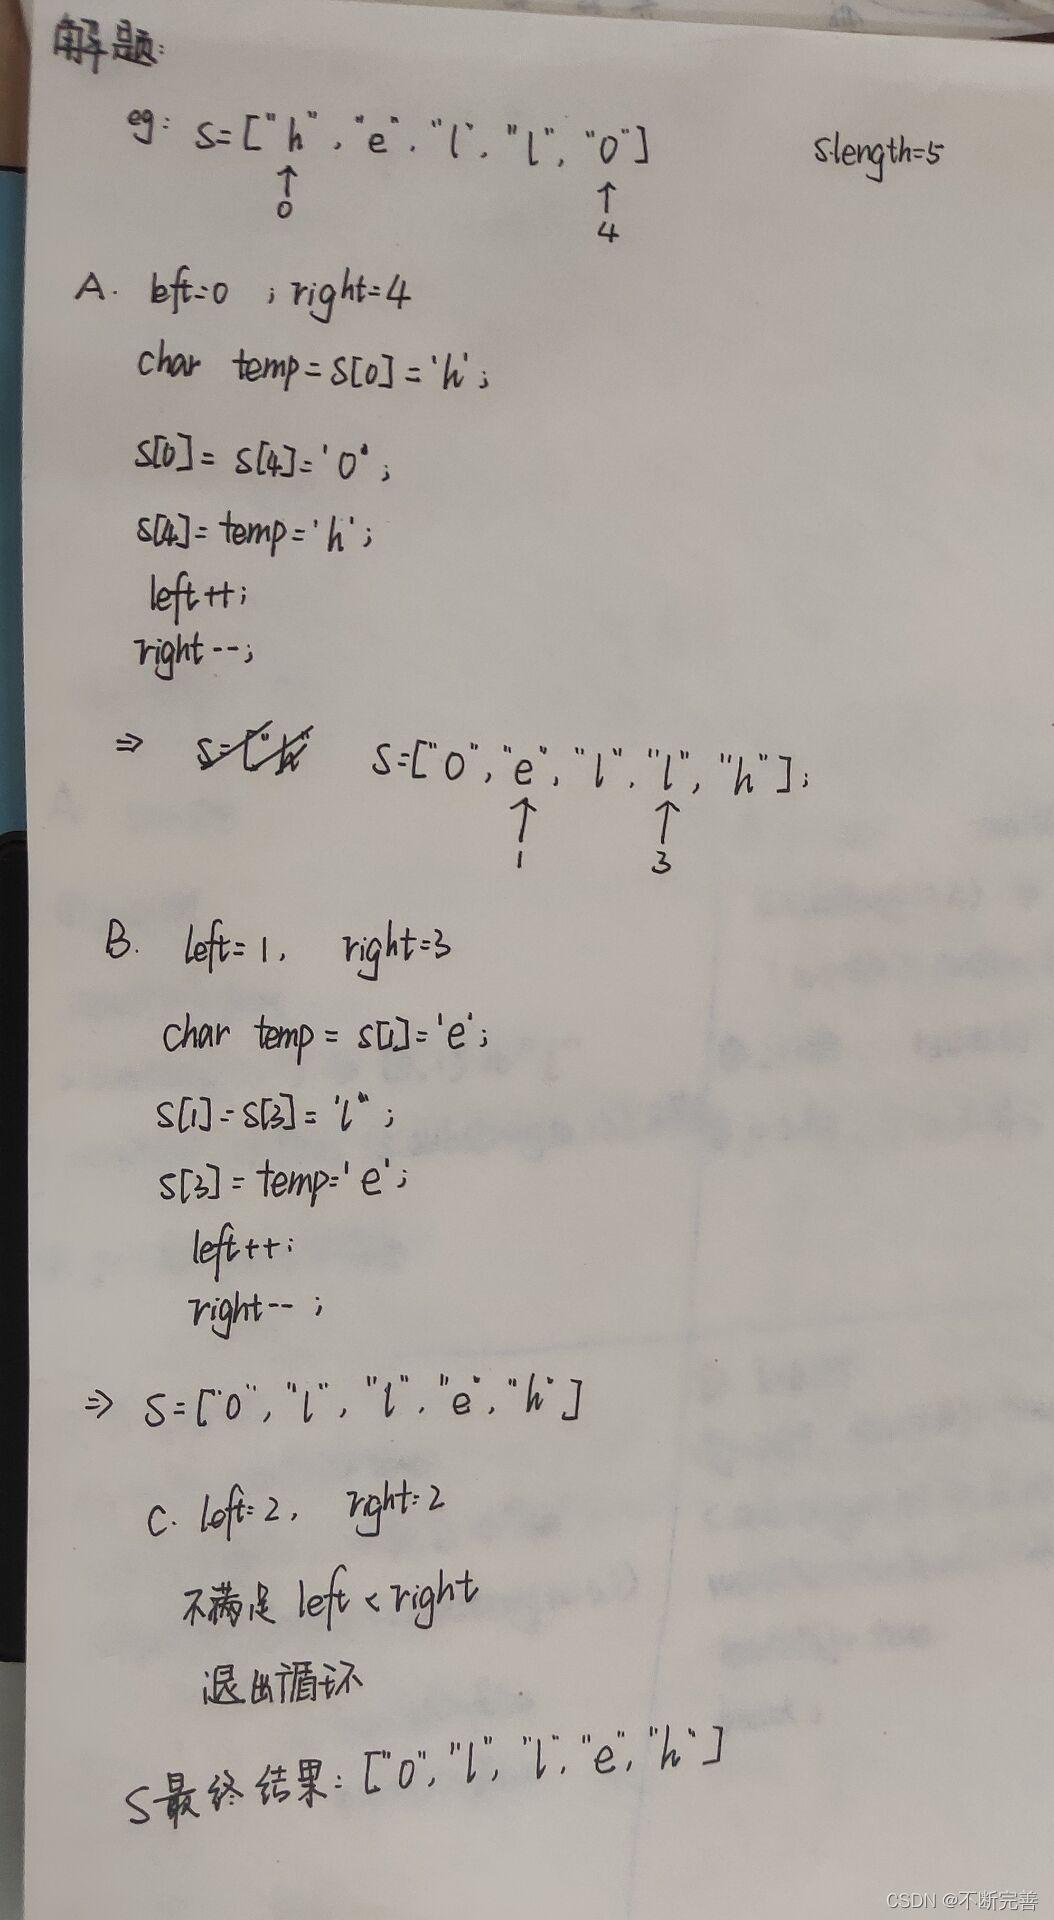 解题:
eg: s=["h", "e", "l", "l", "o"] s.length=5
↑ ↑
0 4
A. left=0 ; right=4
char temp=s[0]='h';
s[0]=s[4]='o';
s[4]=temp='h';
left++;
right--;
⇒ s=["h" s=["o", "e", "l", "l", "h"];
↑ ↑
1 3
B. left=1, right=3
char temp=s[1]='e';
s[1]=s[3]='l';
s[3]=temp='e';
left++;
right--;
⇒ s=["o", "l", "l", "e", "h"]
C. left=2, right=2
不满足 left<right
退出循环
s最终结果: ["o", "l", "l", "e", "h"]
CSDN @不断完善